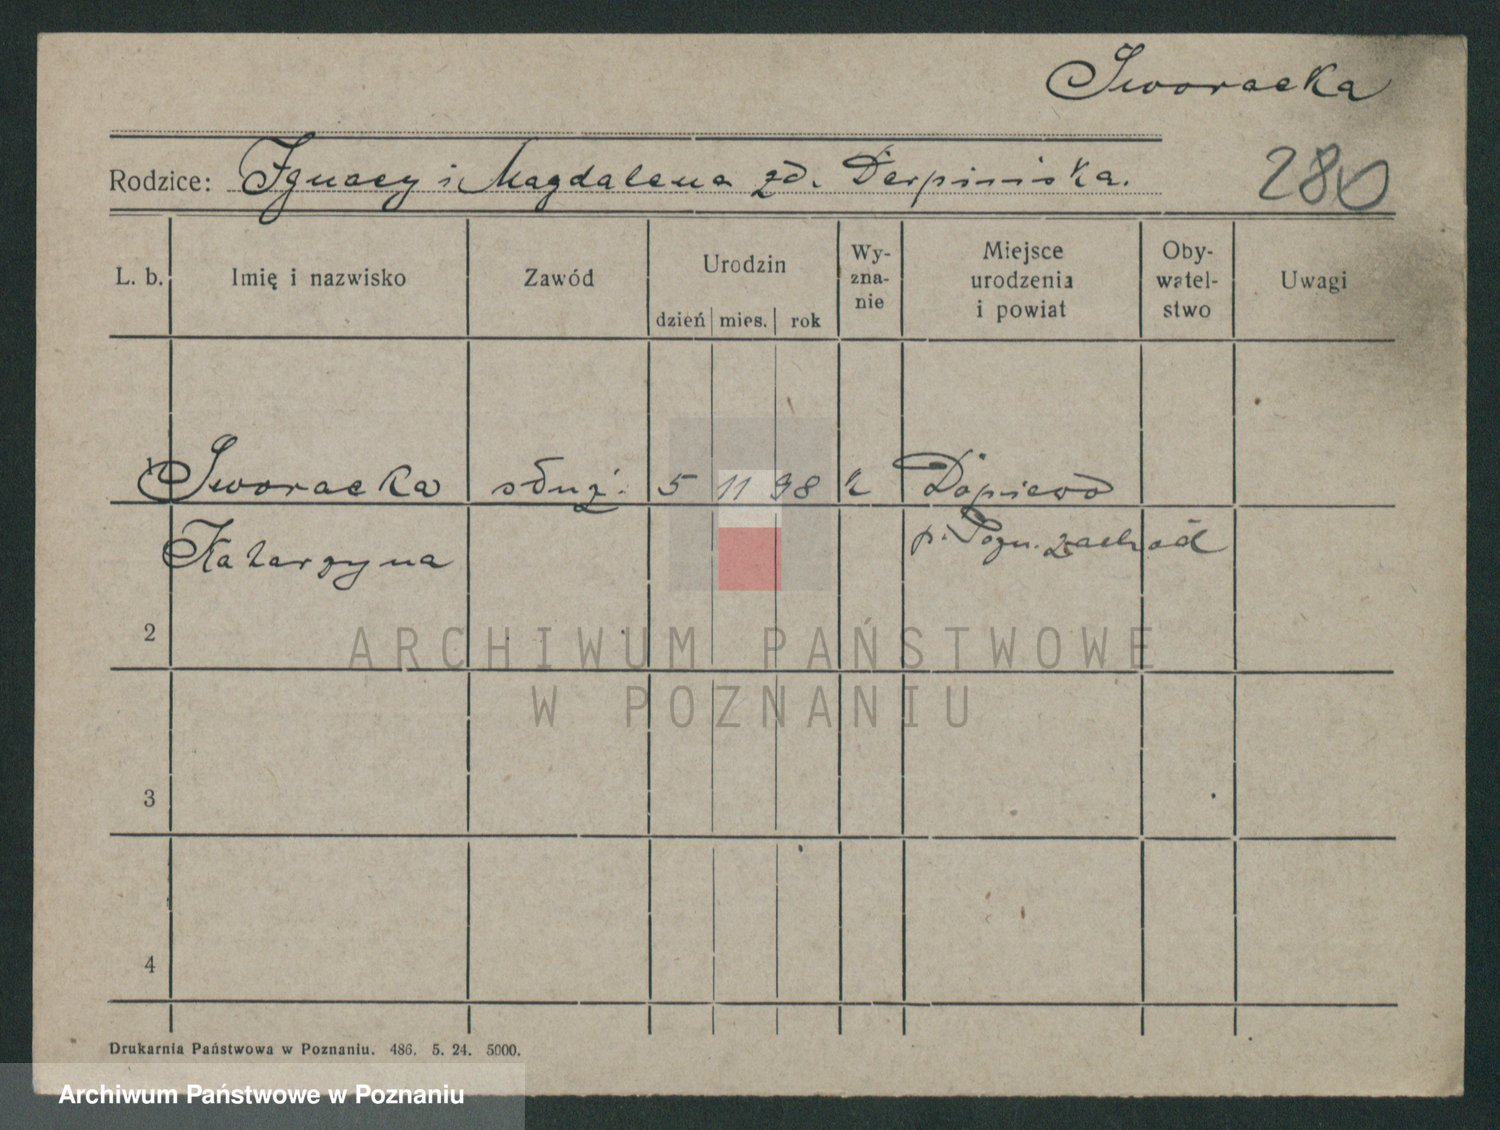 Sworacka
Rodzice: Ignacy i Magdalena zd. Derpinska.
280
L. b.
Imię i nazwisko
Zawód
Urodzin
dzień mies. rok
Wy-
zna-
nie
Miejsce
urodzenia
i powiat
Oby-
watel-
stwo
Uwagi
1 Sworacka służ. 5 11 98 k Dopiewo
Katarzyna p. Pozn. zachód
2
3
4
ARCHIWUM PAŃSTWOWE
W POZNANIU
Drukarnia Państwowa w Poznaniu. 486. 5. 24. 5000.
Archiwum Państwowe w Poznaniu